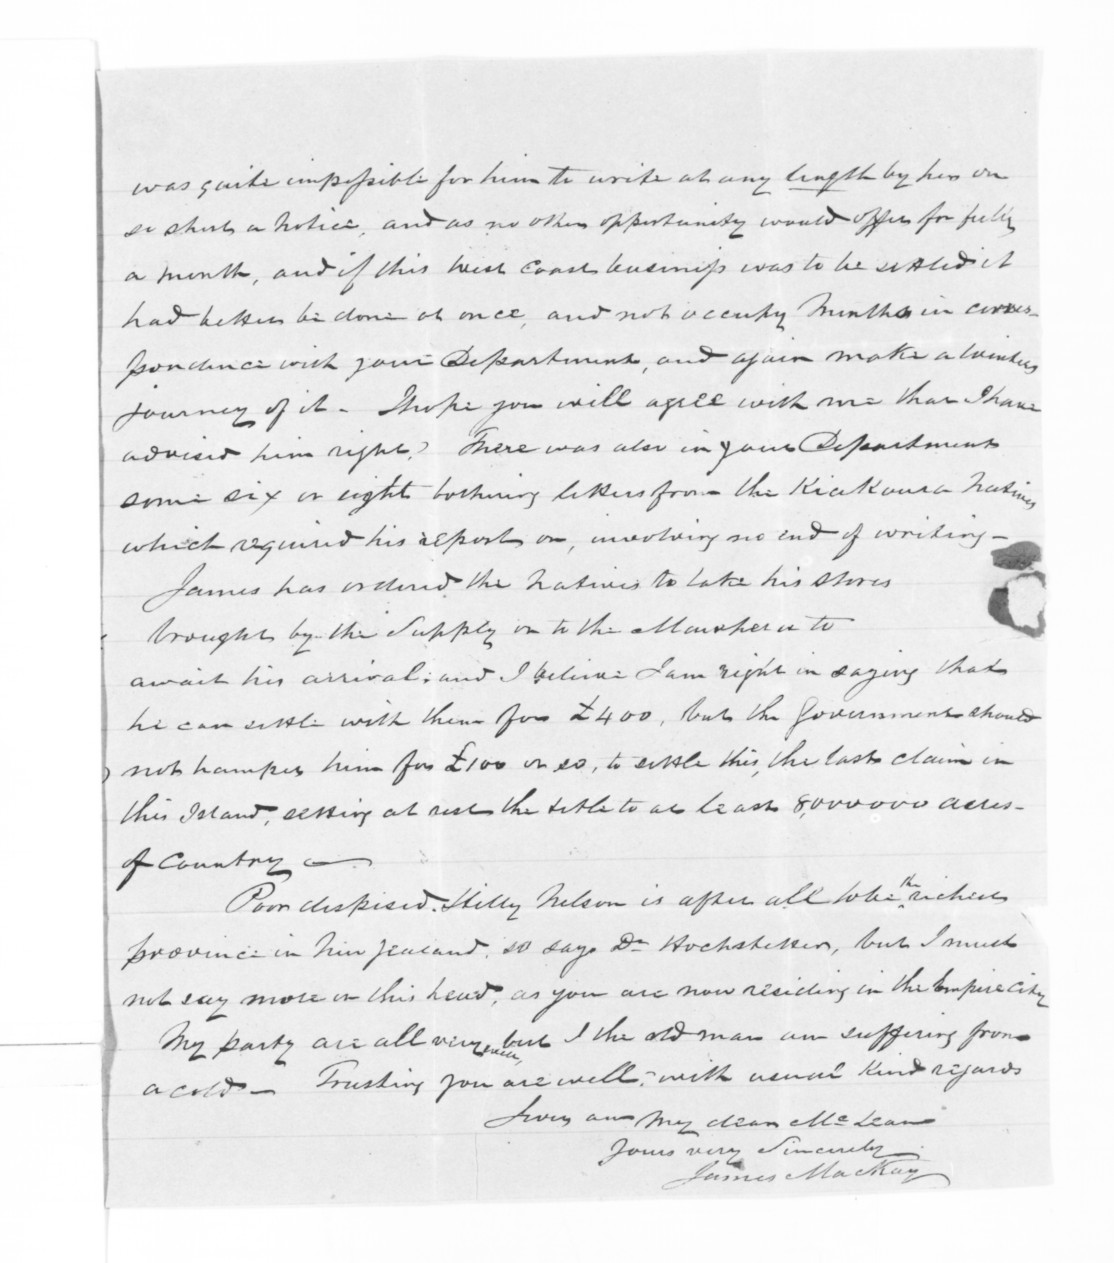 was quite impossible for him to write at any length by her on
so short a notice, and as no other opportunity would offer for fully
a month, and if this West Coast business was to be settled it
had better be done at once, and not occupy Months in corres-
pondence with your Department, and again make a Winters
journey of it - I hope you will agree with me that I have
advised him right? There was also in your Department
some six or eight bothering letters from the Kiakoura Natives
which required his report on, involving no end of writing -
James has ordered the Natives to take his stores
brought by the Supply on to the Mawhera to
await his arrival; and I believe I am right in saying that
he can settle with them for £400, but the Government should
not hamper him for £100 or so, to settle this, the last claim in
this Island, setting at rest the title to at least 8,000000 acres -
of country
Poor despised Hilly Nelson is after all to be the richest
province in New Zealand, so says Dr Hochstetter, but I must
not say more on this head, as you are now residing in the Empire City
My party are all very well, but I the old man am suffering from
a cold - Trusting you are well, with usual kind regards
I am My dear McLean
Yours very Sincerely
James Mackay